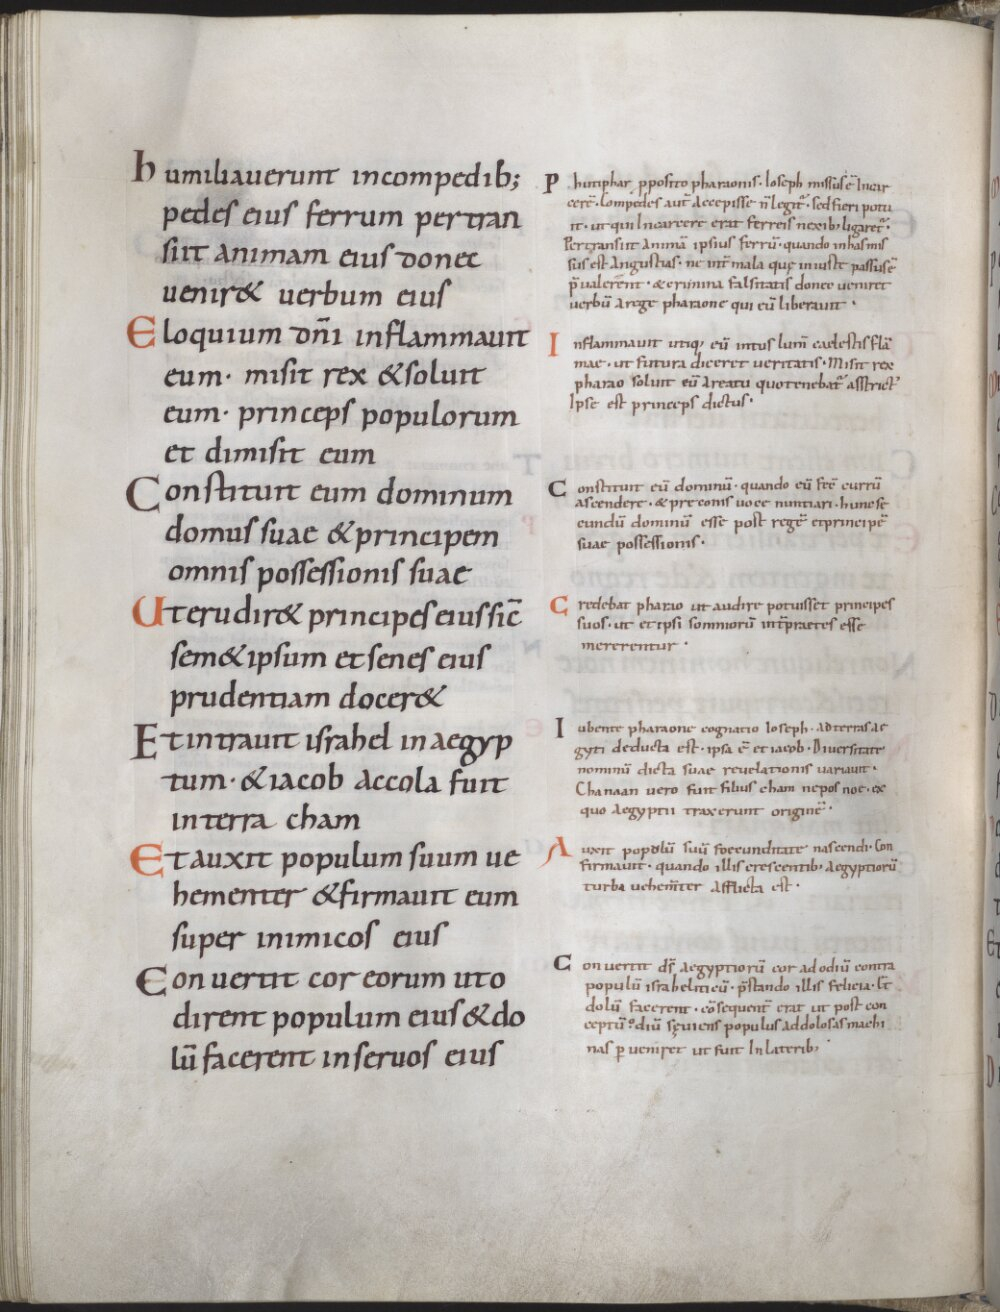 humiliauerunt incompedib;
pedes eius ferrum pertran
siit animam eius donec
uenir& uerbum eius
Eloquium dn̄i inflammauit
eum · misit rex &soluit
eum · princeps populorum
et dimisit eum
Constituit eum dominum
domus suae &principem
omnis possessionis suae
Uterudir& principes eius sic̄
sem&ipsum et senes eius
prudentiam docer&
Et intrauit israhel in aegyp
tum · &iacob accola fuit
in terra cham
Et auxit populum suum ue
hementer &firmauit eum
super inimicos eius
Conuertit cor eorum uto
dirent populum eius &do
lū facerent in seruos eius
Phutiphar p̄posito pharaonis · Ioseph missus ē Incar
cerē · Compedes aut̄ Accepisse n̄ legit̄ · sed fieri potu
it · ut qui Incarcere erat ferreis nexib; ligaret̄ ·
Pertransiit Animā ipsius ferrū · quando inhas mis
sus est Angustias · ne int̄ mala quę iniuste passus ē
p̄ualerent · & crimina falsitatis donec ueniret
uerbū Arege pharaone qui eū liberauit ·
Inflammauit utiq; eū intus lum̄ caelestis flā
mae · ut futura diceret ueritatis · Misit rex
pharao soluit eū Areatu quo tenebat̄ asstrict̄
Ipse est princeps dictus ·
Constituit eū dominū · quando eū fec̄ currū
ascendere · & preconis uoce nuntiari · hunc se
cundū dominū esse post regē et principē
suae possessionis ·
Credebat pharao ut audire potuisset principes
suos · ut et ipsi somniorū int̄praetes esse
mererentur ·
Iubente pharaone cognatio Ioseph · ad terras ae
gyti deducta est · ipsa ē et iacob · Diuersitate
nominū dicta suae reuelationis uariauit ·
Chanaan uero fuit filius cham nepos noe · ex
quo Aegyptii traxerunt originē ·
Auxit populū suū foecunditate nascendi · Con
firmauit · quando illis crescentib; Aegyptiorū
turba uehem̄ter Afflicta est ·
Conuertit ds̄ Aegyptiorū cor ad odiū contra
populū israheliticū · p̄stando illis felicia · Ut
dolū facerent · cōsequent̄ erat ut post con
ceptū odiū sęuiens populus ad dolosas machi
nas peruenir&et ut fuit In laterib;